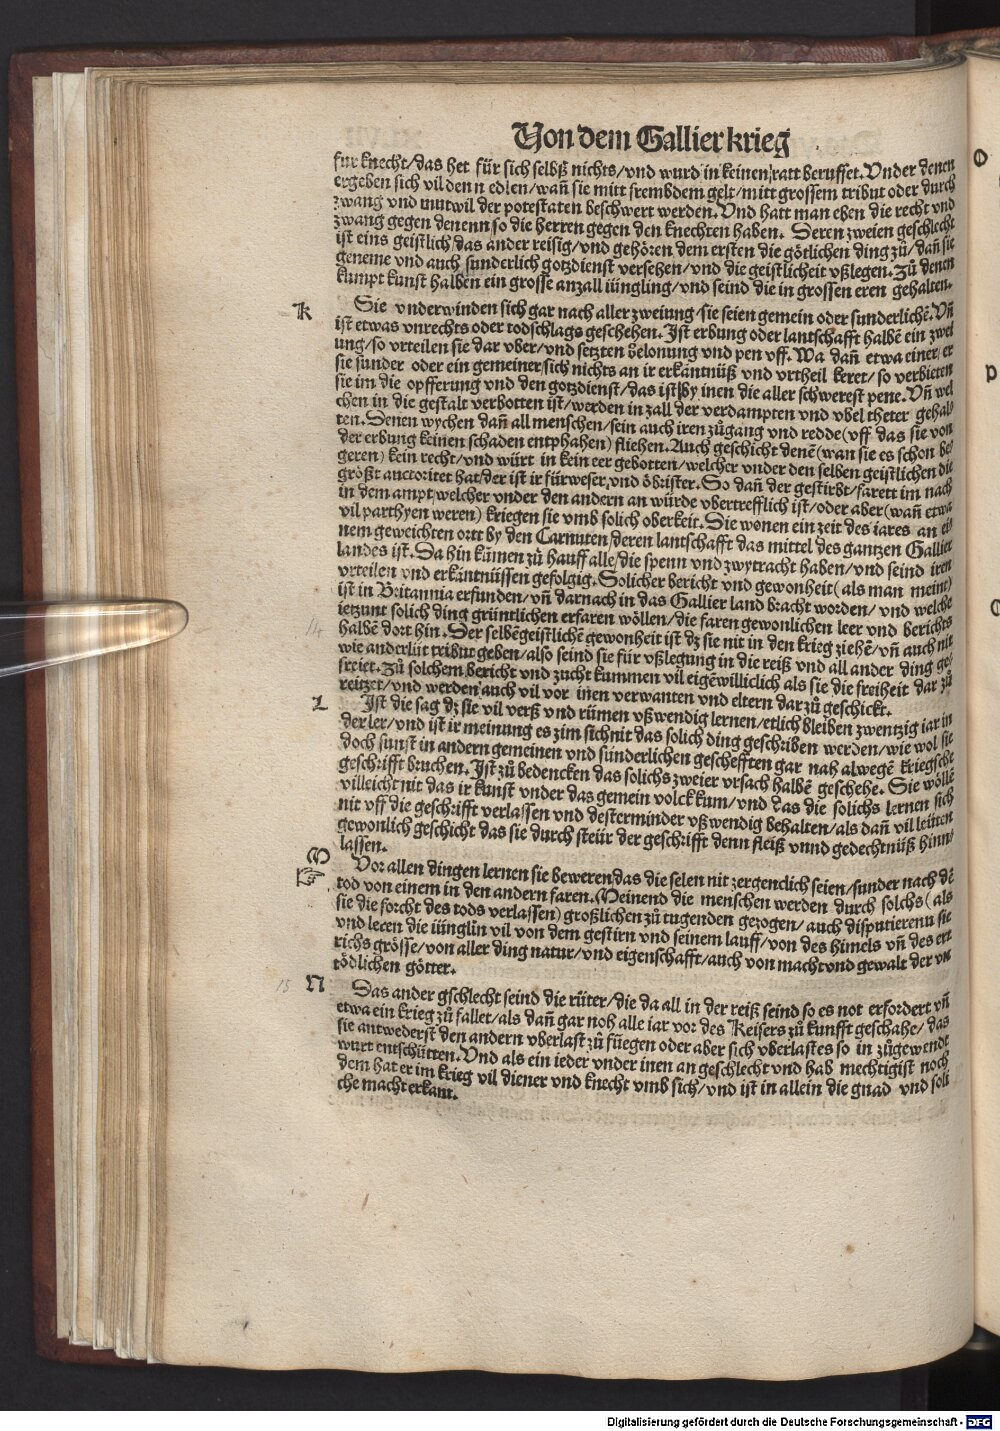 Von dem Gallier krieg
fur knecht/das het für sich selbß nichts/vnd wurd in keinen ratt beruffet. Vnder denen
ergeben sich vil denn edlen/wañ sie mitt frembdem gelt/mitt grossem tribut oder durch
zwang vnd mutwil der potestaten beschwert werden. Vnd hatt man eben die recht vnd
zwang gegen denenn so die herren gegen den knechten haben. Deren zweien geschlecht
ist eins geistlich/das ander reisig/vnd gehören dem ersten die götlichen ding zů/dañ sie
geneme vnd auch sunderlich gotzdienst versehen/vnd die geistlicheit vßlegen. Zů denen
kumpt kunst halben ein grosse anzall iüngling/vnd seind die in grossen eren gehalten.
K
Sie vnderwinden sich gar nach aller zweiung/sie seien gemein oder sunderlichē. Vñ
ist etwas vnrechts oder todschlags geschehen. Ist erbung oder lantschafft halbē ein zwei
ung/so vrteilen sie dar vber/vnd setzten belonung vnd pen vff. Wa dañ etwa einer/er
sie sunder oder ein gemeiner/sich nichts an ir erkantnüß vnd vrtheil keret/so verbieten
sie im die opfferung vnd den gotzdienst/das ist by inen die aller schwerest pene. Vñ wel
chen in die gestalt verbotten ist/werden in zall der verdampten vnd vbel theter gehal/
ten. Denen wychen dañ all menschen/sein auch iren zůgang vnd redde(vff das sie von
der erbung keinen schaden entphahen) fliehen. Auch geschicht denē(wan sie es schon be/
geren) kein recht/vnd würt in kein eer gebotten/welcher vnder den selben geistlichen die
größt auctoritet hat/der ist ir fürweser/vnd öbrister. So dañ der gestirbt/farett im nach
in dem ampt/welcher vnder den andern an würde vbertrefflich ist/oder aber(wañ etwa
vil parthyen weren) kriegen sie vmb solich oberkeit. Die wonen ein zeit des iares an ei/
nem geweichten ortt by den Carnuten/deren lantschafft das mittel des gantzen Gallier
landes ist. Da hin kämen zů hauff alle/die spenn vnd zwytracht haben/vnd seind iren
vrteilen vnd erkantnüssen gefolgig. Solicher bericht vnd gewonheit(als man meint)
ist in Britannia erfunden/vñ darnach in das Gallier land bracht worden/vnd welche
ietzunt solich ding grüntlichen erfaren wöllen/die faren gewonlichen leer vnd berichts
14
halbē dort hin. Der selbēgeistlichē gewonheit ist dz sie nit in den krieg ziehē/vñ auch nit
wie anderlüt tribut geben/also seind sie für vßlegung in die reiß vnd all ander ding ge/
freiet. Zů solchem bericht vnd zucht kummen vil eigēwilliclich als sie die freiheit dar zů
reitzet/vnd werden auch vil vor inen verwanten vnd eltern dar zů geschickt.
L
Ist die sag dz sie vil verß vnd rümen vßwendig lernen/etlich bleiben zwentzig iar in
der ler/vnd ist ir meinung es zim sich nit das solich ding geschriben werden/wie wol sie
doch sunst in andern gemeinen vnd sunderlichen geschefften gar nah alwegē kriegsche
geschrifft bruchen. Ist zů bedencken das solichs zweier vrsach halbē geschehe. Sie wöllē
villeicht nit das ir kunst vnder das gemein volck kum/vnd das die solichs lernen sich
nit vff die geschrifft verlassen vnd desterminder vßwendig behalten/als dañ vil leüten
gewonlich geschicht das sie durch steür der geschrifft denn fleiß vnnd gedechtnüß hinn/
lassen.
M
Vor allen dingen lernen sie beweren/das die selen nit zergenclich seien/sunder nach dē
tod von einem in den andern faren. Meinend die menschen werden durch solchs(als
sie die forcht des tods verlassen) großlichen zů tugenden gezogen/auch disputierenn sie
vnd leren die iünglin vil von dem gestirn vnd seinem lauff/von des himels vñ des ert
richs grösse/von aller ding natur/vnd eigenschafft/auch von macht vnd gewalt der vn
tödlichen götter.
15 N
Das ander gschlecht seind die rüter/die da all in der reiß seind so es not erfordert vñ
etwa ein krieg zů fallet/als dañ gar noh alle iar vor des Keisers zů kunfft geschahe/das
sie antwederst den andern vberlast zů fuegen oder aber sich vberlastes so in zůgewendt
wurt entschütten. Vnd als ein ieder vnder inen an geschlecht vnd hab mechtigist noch
dem hat er im krieg vil diener vnd knecht vmb sich/vnd ist in allein die gnad vnd soli
che macht erkant.
O
p
Digitalisierung gefördert durch die Deutsche Forschungsgemeinschaft - DFG